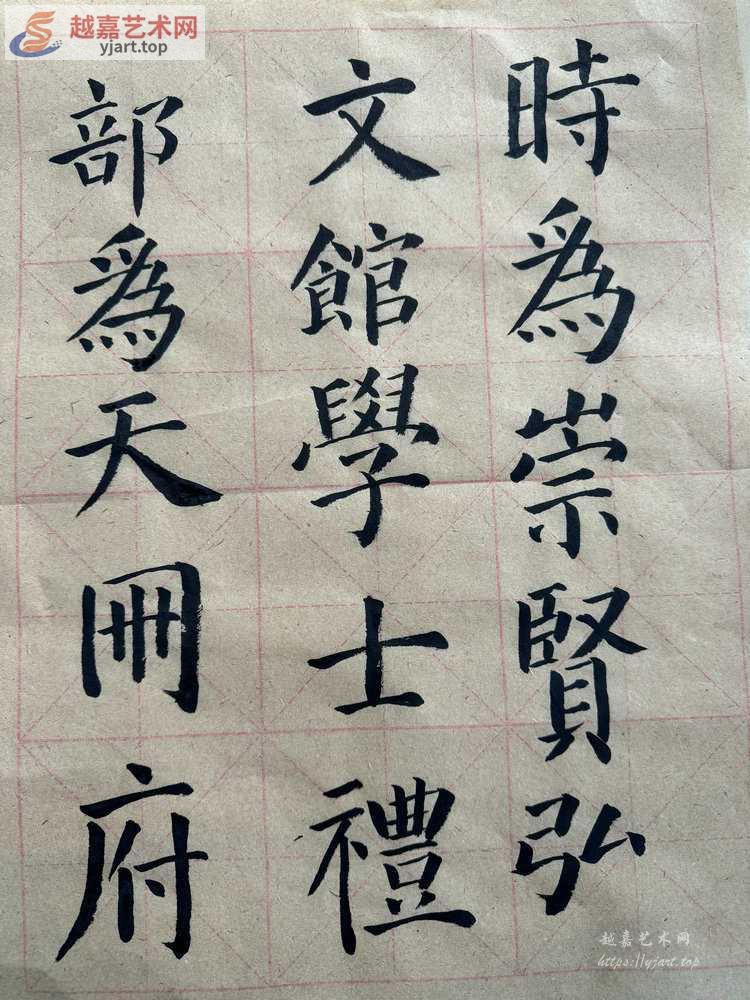 越嘉艺术网
yjart.top
時為崇賢弘
文館學士禮
部為天冊府
越嘉艺术网
https://yjart.top